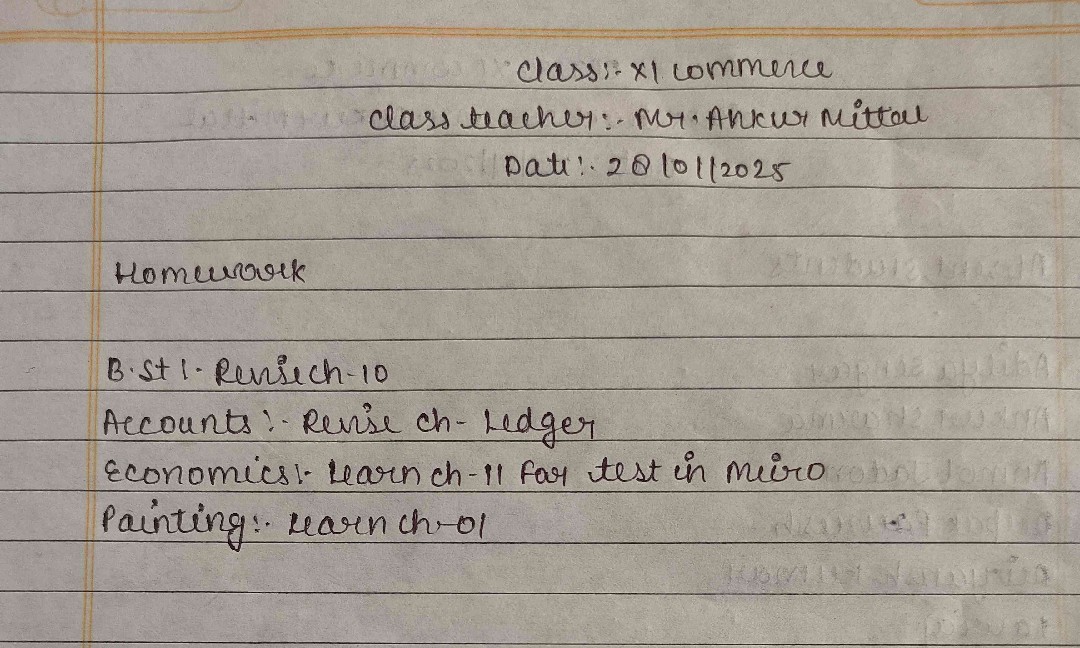 Class:- XI Commerce
Class teacher:- Mr. Ankur Mittal
Date:- 28/01/2025
Homework
B.St:- Revise ch-10
Accounts:- Revise ch- Ledger
Economics:- Learn ch-11 for test in micro
Painting:- Learn ch-01